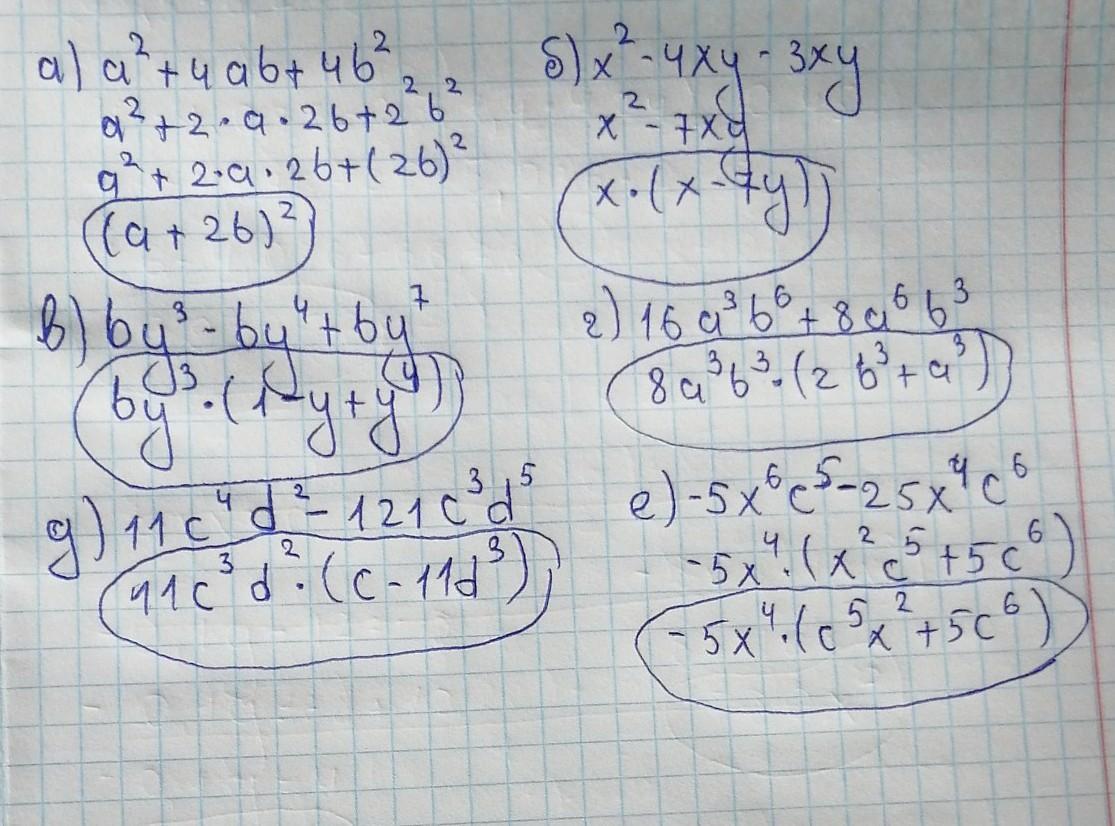 а) a² + 4ab + 4b²
a² + 2 · a · 2b + 2²b²
a² + 2 · a · 2b + (2b)²
(a + 2b)²
б) x² - 4xy - 3xy
x² - 7xy
x · (x - 7y)
в) 6y³ - 6y⁴ + 6y⁷
6y³ · (1 - y + y⁴)
г) 16a³b⁶ + 8a⁶b³
8a³b³ · (2b³ + a³)
д) 11c⁴d² - 121c³d⁵
11c³d² · (c - 11d³)
е) -5x⁶c⁵ - 25x⁴c⁶
-5x⁴ · (x²c⁵ + 5c⁶)
-5x⁴ · (c⁵x² + 5c⁶)